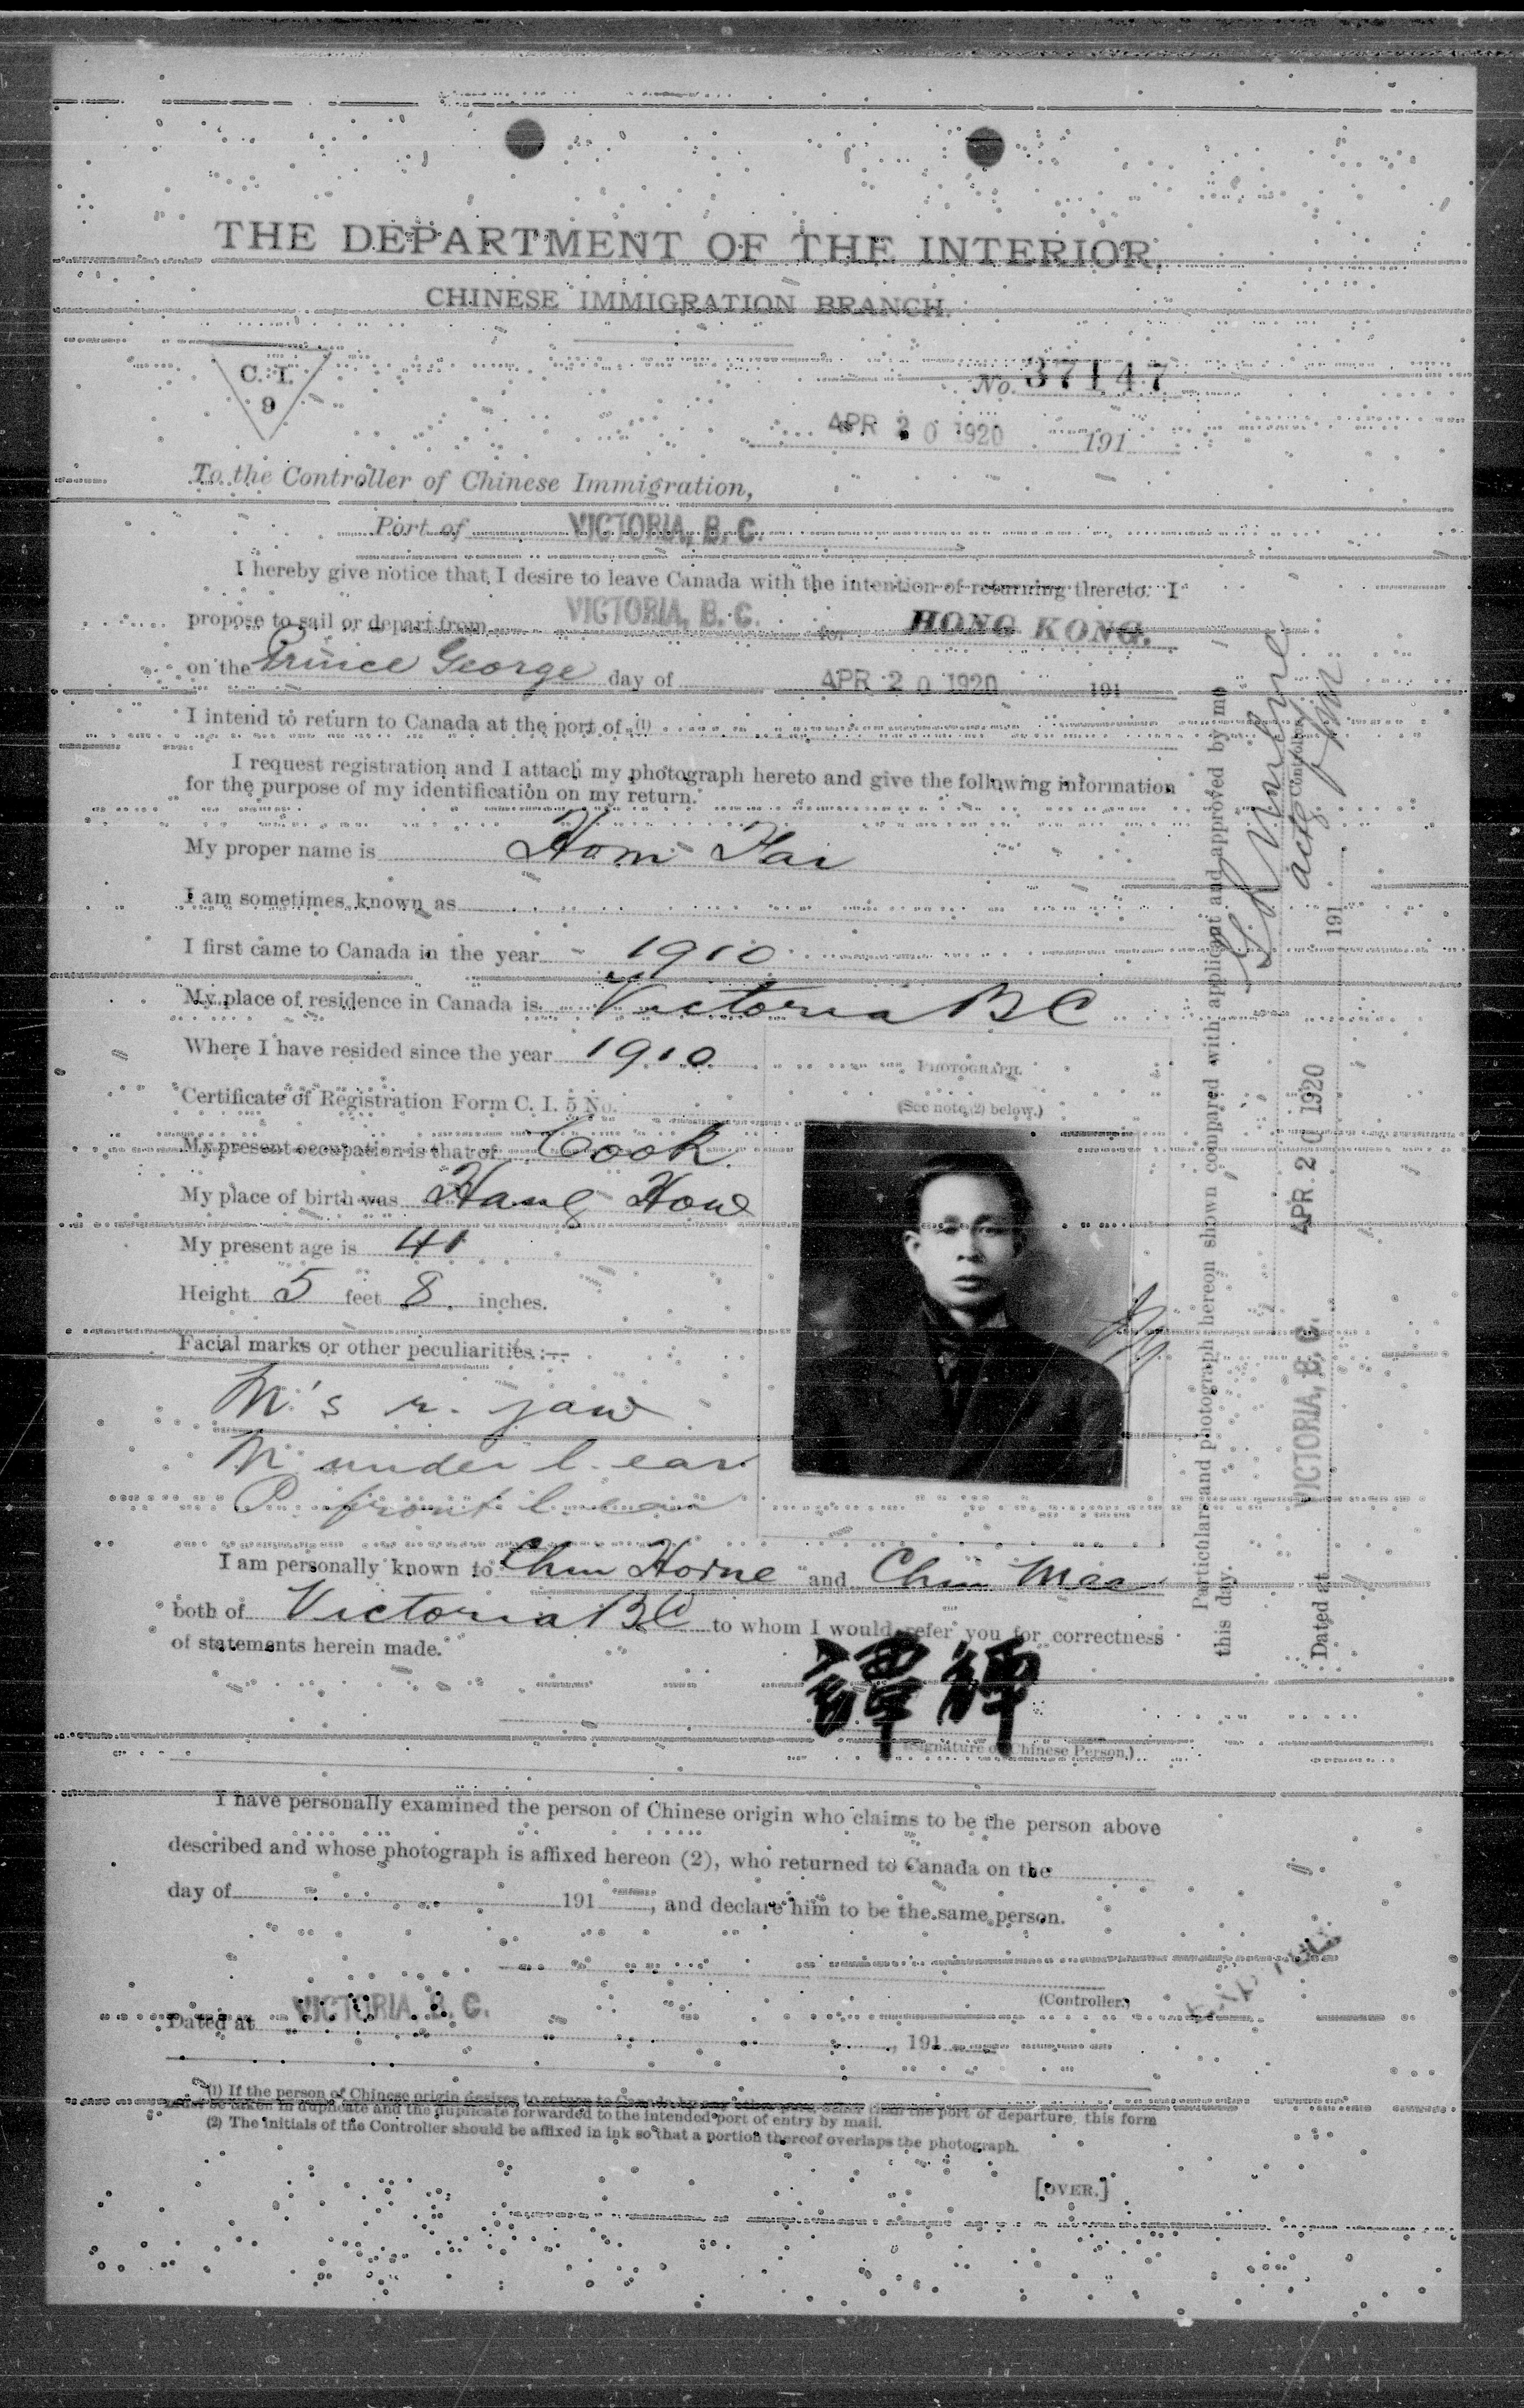 THE DEPARTMENT OF THE INTERIOR.
CHINESE IMMIGRATION BRANCH.
C. I.
9
No. 37147
APR 20 1920 191
To the Controller of Chinese Immigration,
Port of VICTORIA, B. C.
I hereby give notice that I desire to leave Canada with the intention of returning thereto. I
propose to sail or depart from VICTORIA, B. C. for HONG KONG.
on the Prince George day of APR 20 1920 191
I intend to return to Canada at the port of (1)
I request registration and I attach my photograph hereto and give the following information
for the purpose of my identification on my return.
My proper name is Hom Hai
I am sometimes known as
I first came to Canada in the year 1910
My place of residence in Canada is Victoria BC
Where I have resided since the year 1910
PHOTOGRAPH.
Certificate of Registration Form C. I. 5 No.
(See note (2) below.)
My present occupation is that of Cook
My place of birth was Hang How
My present age is 41
Height 5 feet 8 inches.
Facial marks or other peculiarities :—
M's r. jaw
M under l. ear
P. front l. ear
I am personally known to Chin Horne and Chin Mae
both of Victoria BC to whom I would refer you for correctness
of statements herein made.
譚
(Signature of Chinese Person.)
I have personally examined the person of Chinese origin who claims to be the person above
described and whose photograph is affixed hereon (2), who returned to Canada on the
day of 191 , and declare him to be the same person.
(Controller.)
Dated at VICTORIA, B. C. , 191
(1) If the person of Chinese origin desires to return to Canada by any other port than the port of departure, this form
must be taken in duplicate and the duplicate forwarded to the intended port of entry by mail.
(2) The initials of the Controller should be affixed in ink so that a portion thereof overlaps the photograph.
[OVER.]
Particulars and photograph hereon shown compared with applicant and approved by me
this day.
Actg. Controller.
Dated at VICTORIA, B. C. APR. 20 1920 191